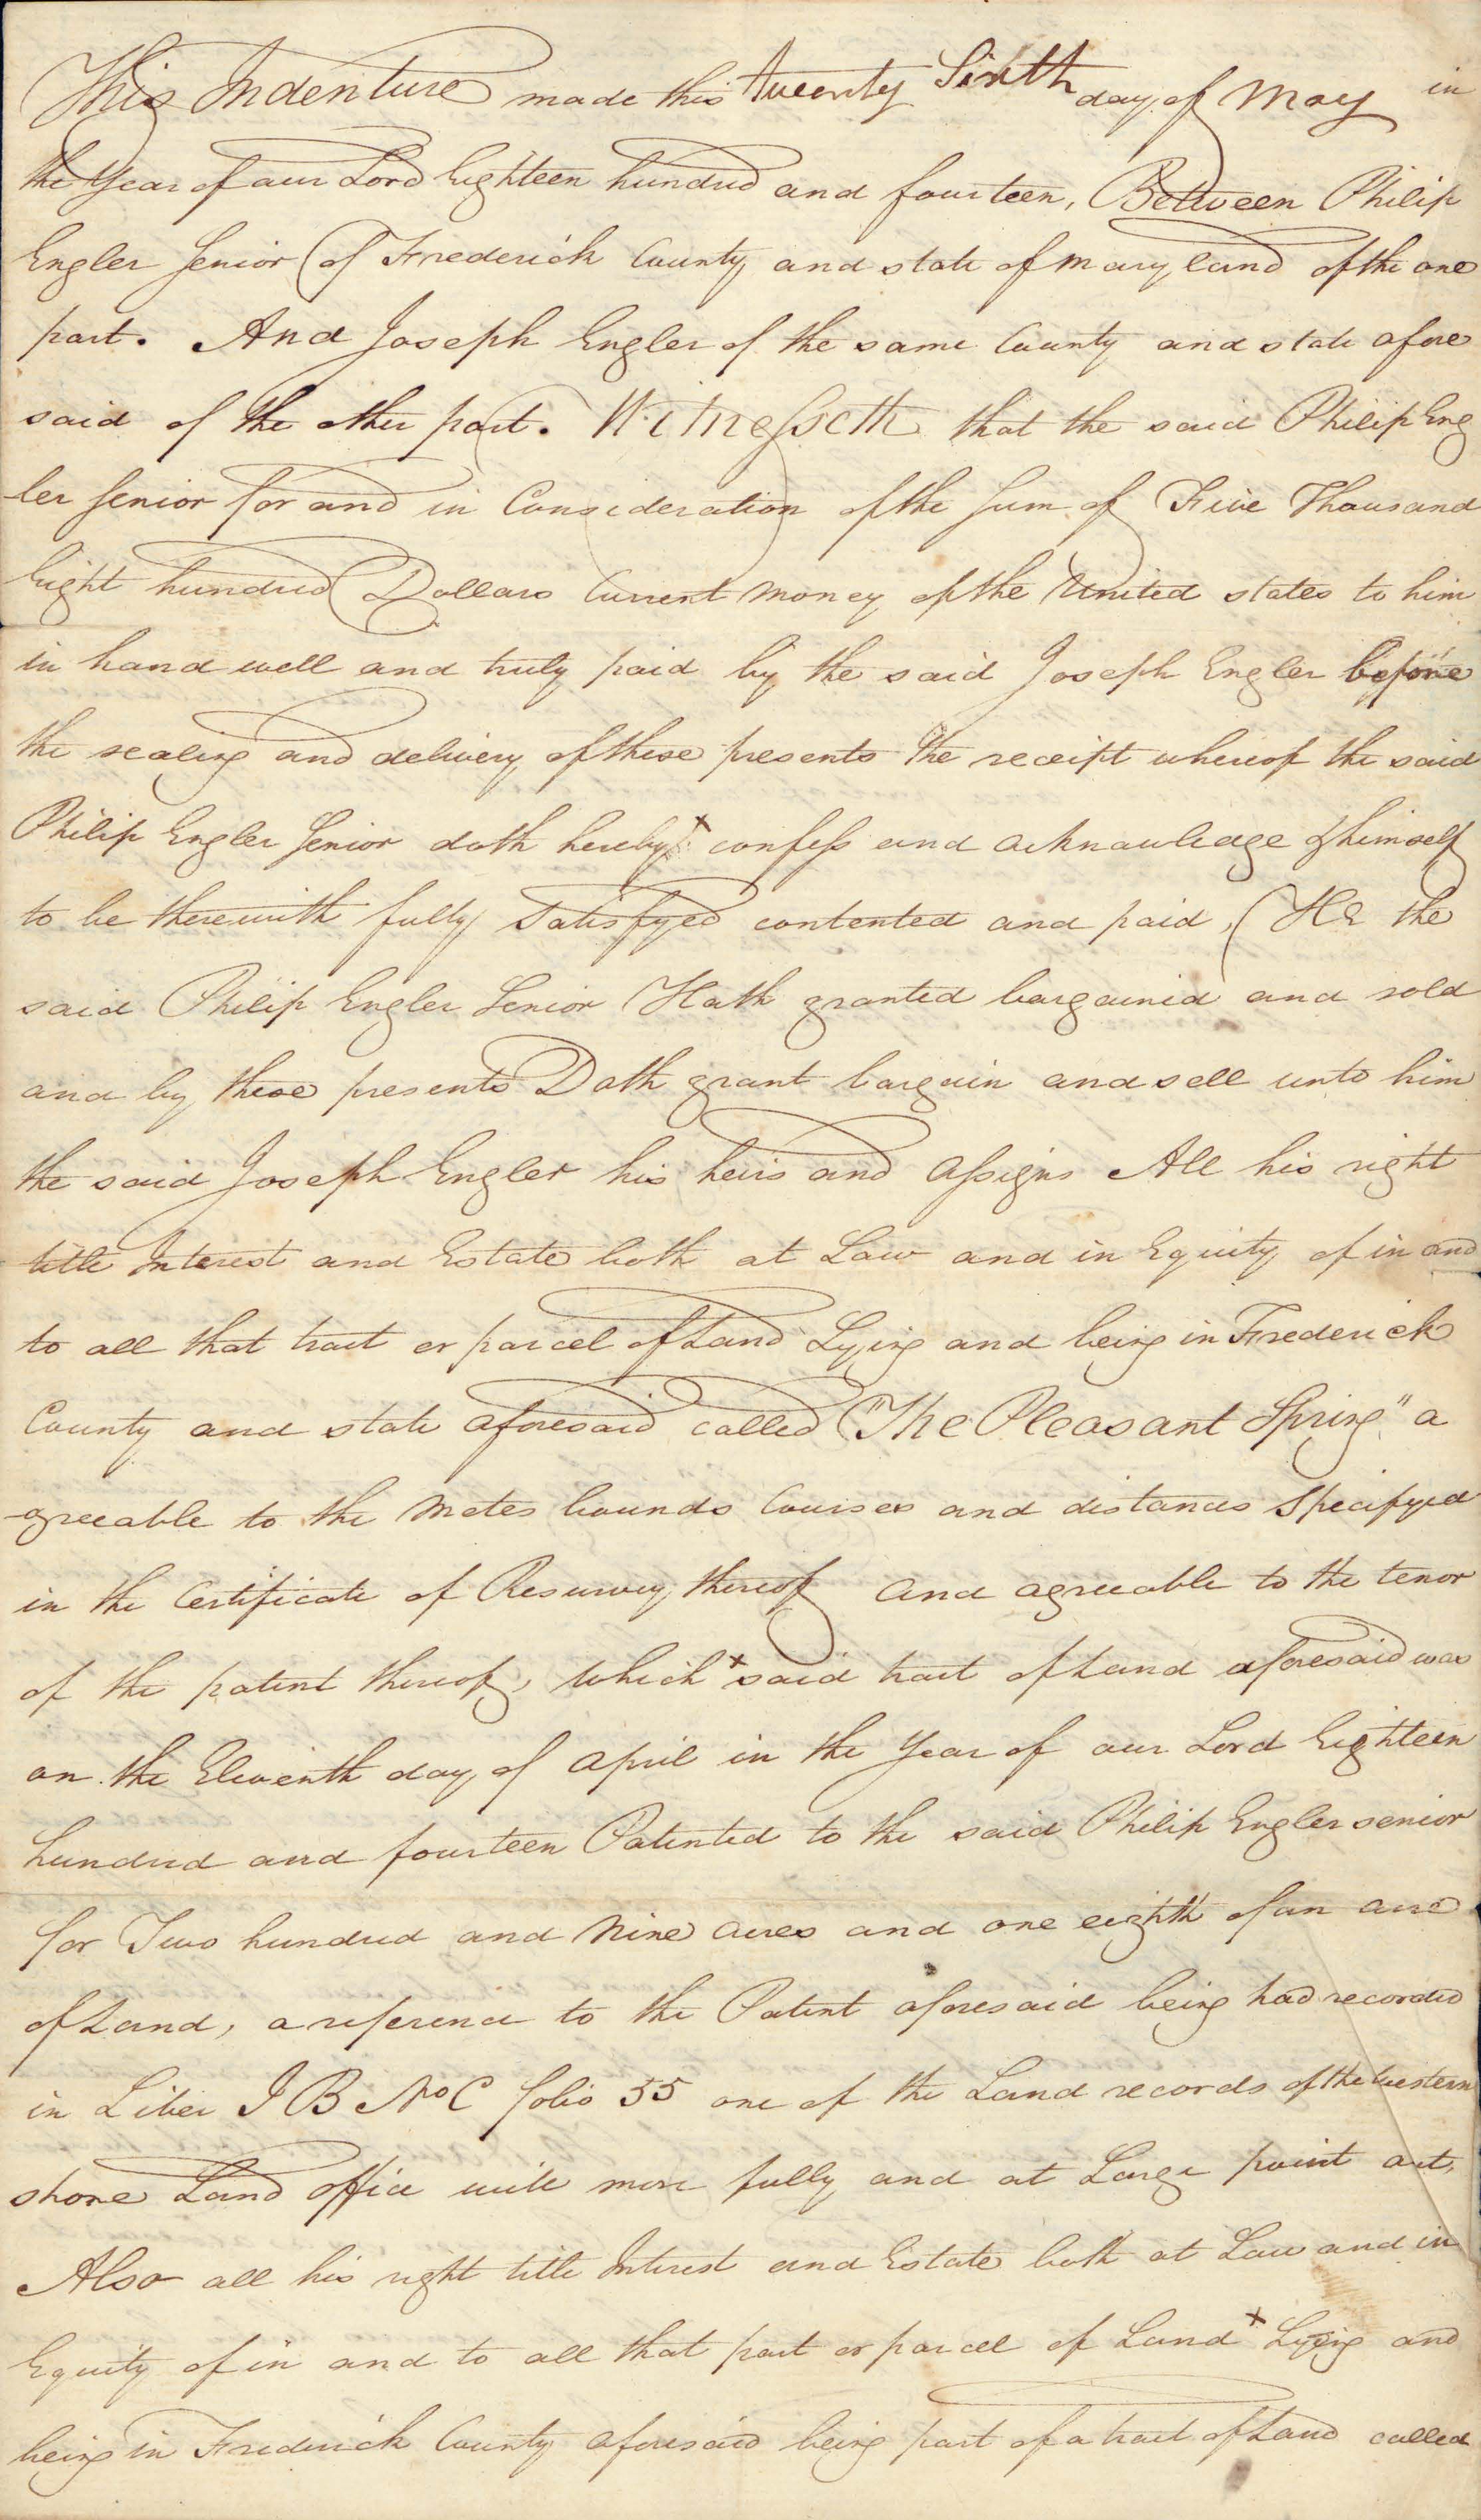 This Indenture made this Twenty Sixth day of May in
the Year of our Lord Eighteen hundred and fourteen, Between Philip
Engler Senior of Frederick County and state of Maryland of the one
part. And Joseph Engler of the same County and state afore
said of the other part. Witnesseth that the said Philip Eng
ler Senior for and in Consideration of the Sum of Five Thousand
Eight hundred Dollars Current Money of the United states to him
in hand well and truly paid by the said Joseph Engler before
the sealing and delivery of these presents the receipt whereof the said
Philip Engler Senior doth hereby x confess and acknowledge & himself
to be therewith fully Satisfyed contented and paid, He the
said Philip Engler Senior Hath granted bargained and sold
and by these presents Doth grant bargain and sell unto him
the said Joseph Engler his heirs and assigns All his right
title Interest and Estate both at Law and in Equity of in and
to all that tract or parcel of Land Lying and being in Frederick
County and state aforesaid called "The Pleasant Spring" a
-greeable to the Metes bounds Courses and distances Specifyed
in the Certificate of Resurvey thereof and agreeable to the tenor
of the patent thereof, which x said tract of Land aforesaid was
on the Eleventh day of April in the Year of our Lord Eighteen
hundred and fourteen Patented to the said Philip Engler senior
for Two hundred and Nine acres and one eighth of an acre
of Land, a reference to the Patent aforesaid being had recorded
in Liber I B No C folio 55 one of the Land records of the Western
shore Land office will more fully and at Large point out,
Also all his right title Interest and Estate both at Law and in
Equity of in and to all that part or parcel of Land x Lying and
being in Frederick County aforesaid being part of a tract of Land called